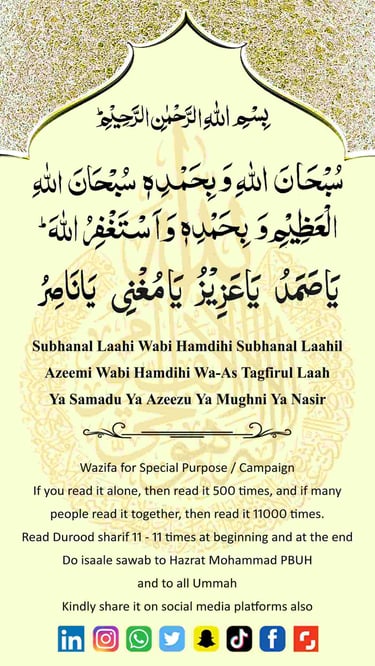 بِسْمِ اللهِ الرَّحْمٰنِ الرَّحِيْمِ
سُبْحَانَ اللهِ وَبِحَمْدِهٖ سُبْحَانَ اللهِ
الْعَظِيْمِ وَ بِحَمْدِهٖ وَاَسْتَغْفِرُ اللهَ ؕ
يَاصَمَدُ يَاعَزِيْزُ يَامُغْنِى يَانَاصِرُ
Subhanal Laahi Wabi Hamdihi Subhanal Laahil
Azeemi Wabi Hamdihi Wa-As Tagfirul Laah
Ya Samadu Ya Azeezu Ya Mughni Ya Nasir
Wazifa for Special Purpose / Campaign
If you read it alone, then read it 500 times, and if many
people read it together, then read it 11000 times.
Read Durood sharif 11 - 11 times at beginning and at the end
Do isaale sawab to Hazrat Mohammad PBUH
and to all Ummah
Kindly share it on social media platforms also